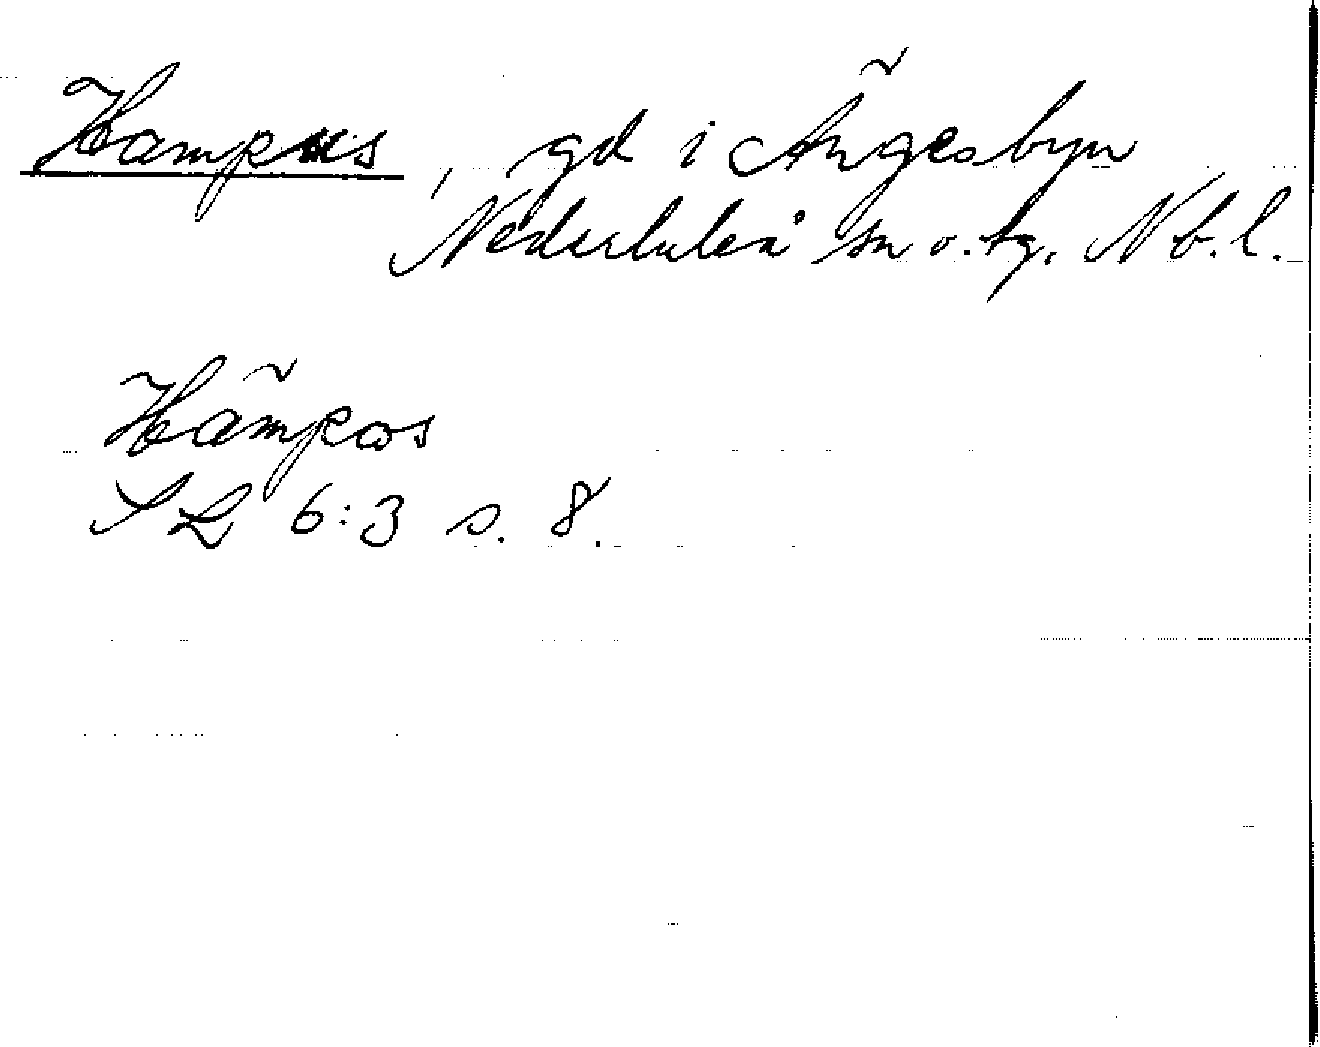 Hampus, gd i Ängesbyn
Nederluleå sn o. tg. Nb.l.
Hämpos
SL 6:3 s. 8.